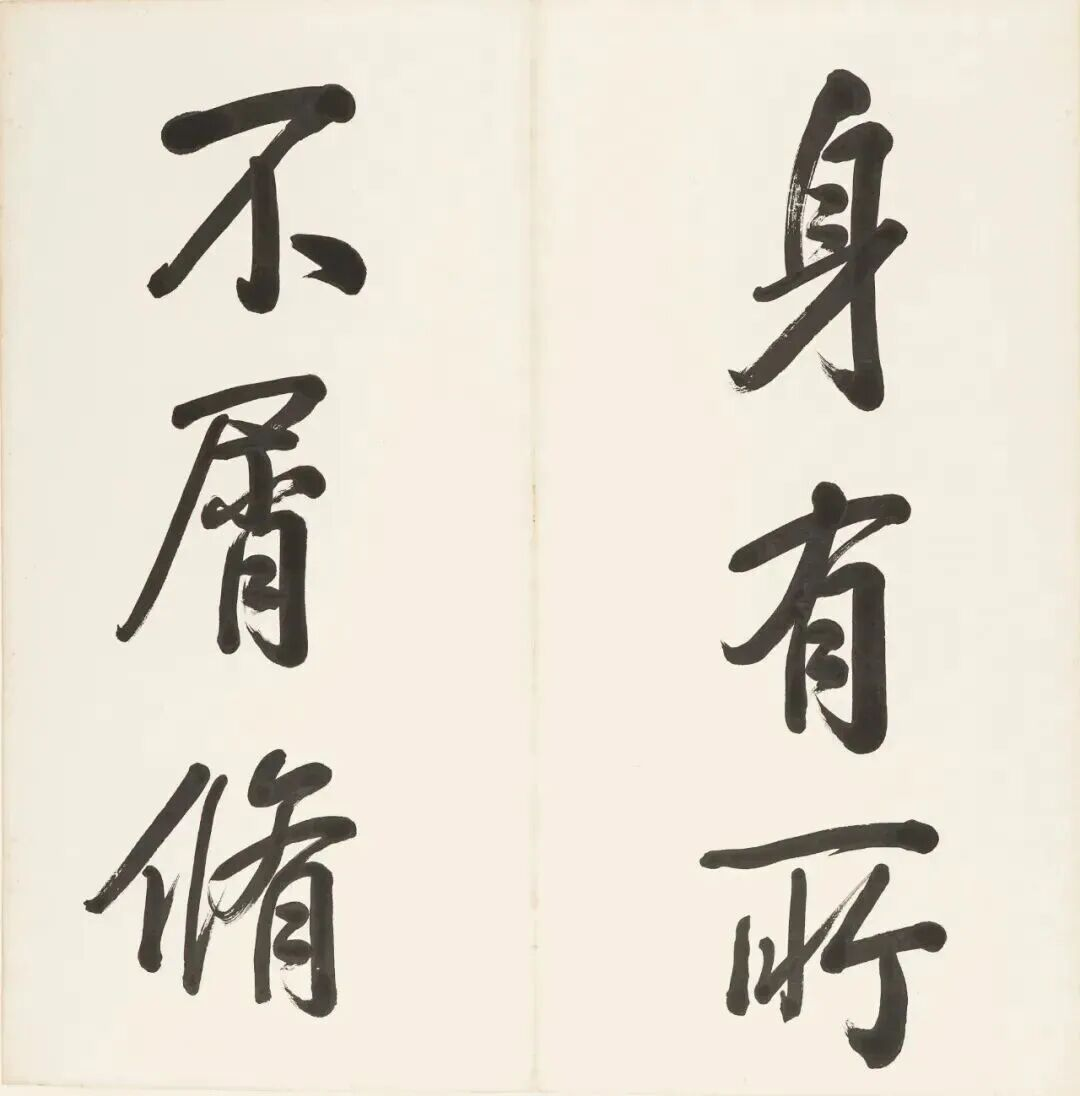 身有所
不屑脩